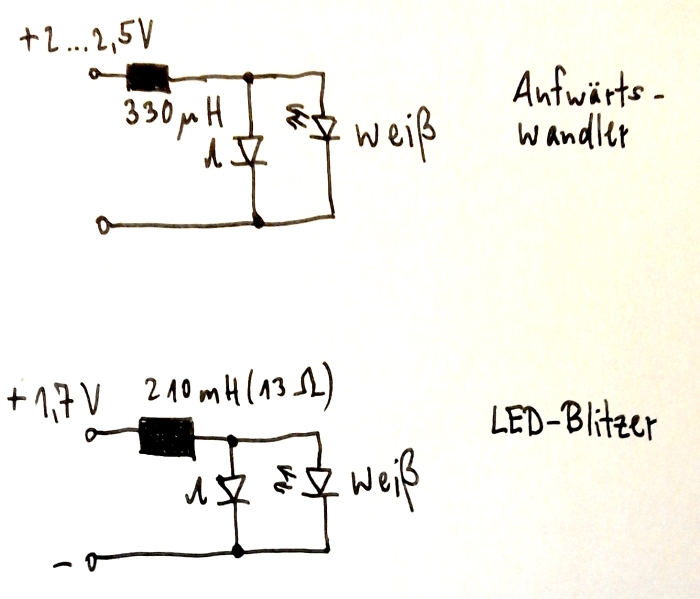 +2...2,5V
330µH
weiß
Aufwärts-
wandler
+1,7V
210mH(13Ω)
weiß
LED-Blitzer
-